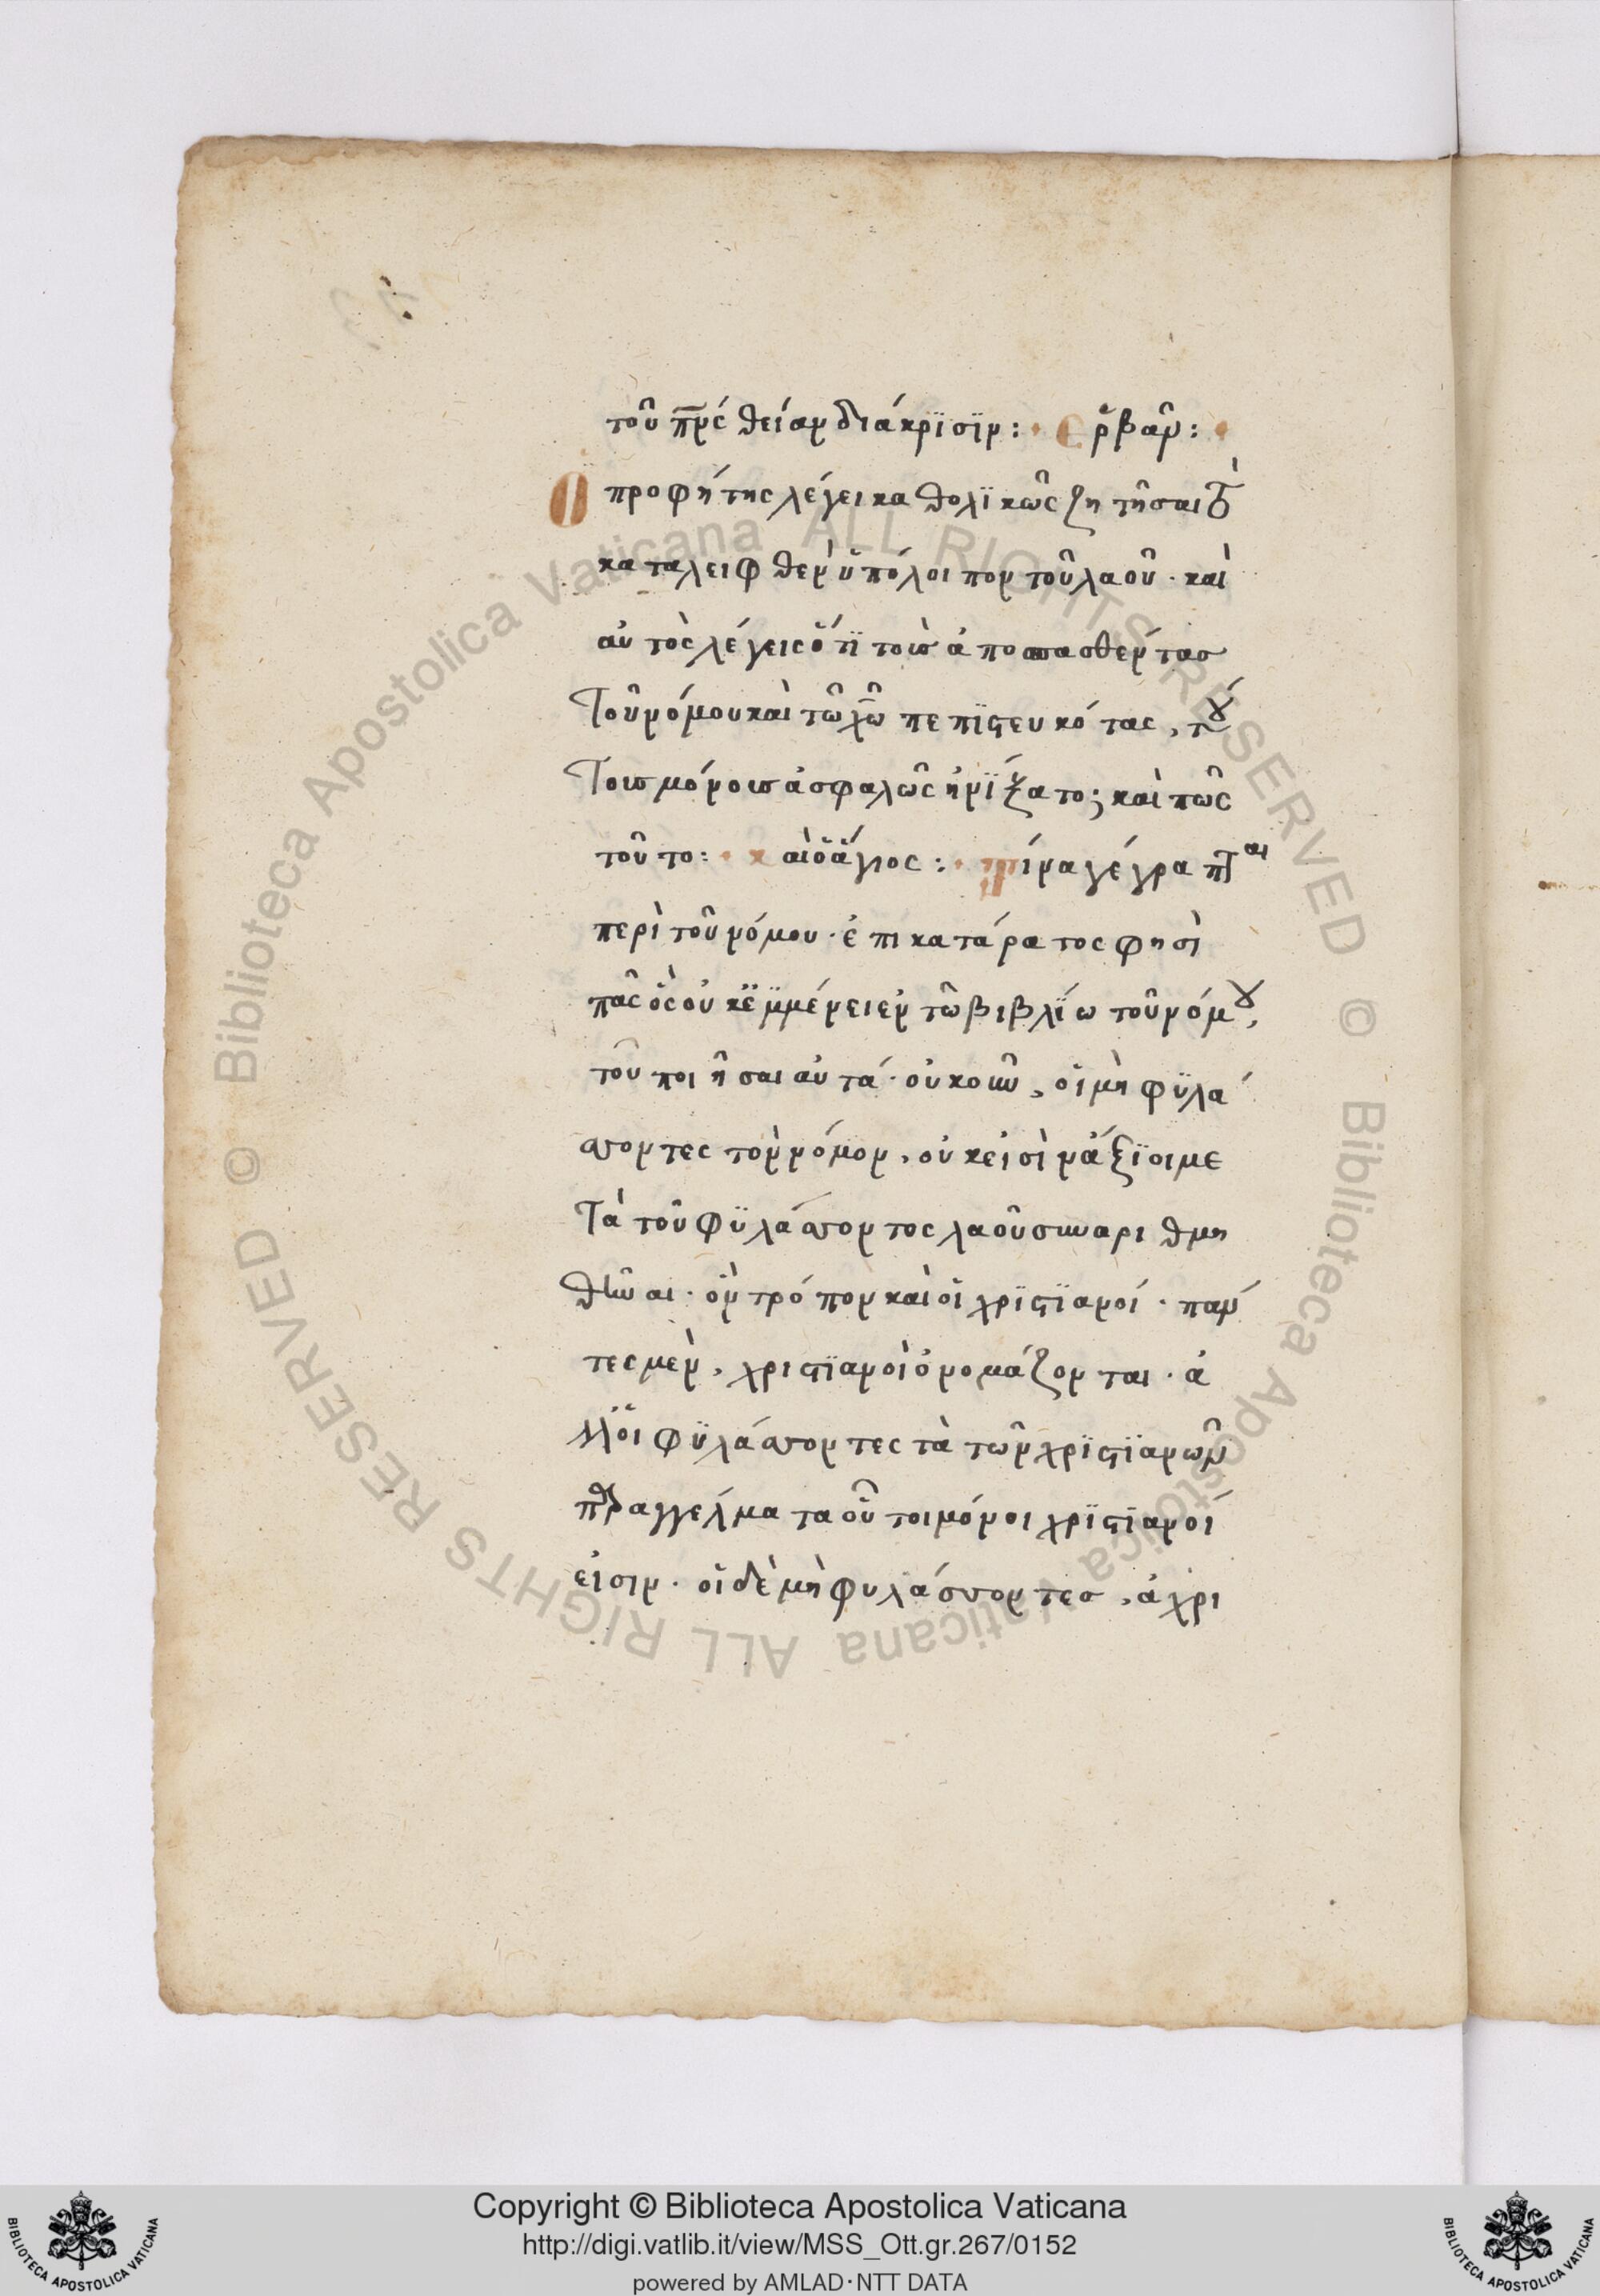 τοῦ πρς θείαν διάκρϊσϊν: Ερβᾶν:
Ο προφήτης λέγει καθολϊκῶς ζητῆσαι τὸ
καταλειφθὲν ὑπόλοιπον τοῦ λαοῦ· καὶ
αὐτὸς λέγεις ὅτϊ τοὺς ἀποσπασθέντας
τοῦ νόμου καὶ τῶ χῶ πεπϊστευκότας, τού
τοις μόνοις ἀσφαλῶς ἠνΐξατο; καὶ πῶς
τοῦτο: καὶ ὁ ἅγιος: τίνα γέγραπται
περὶ τοῦ νόμου· ἐπικατάρατος φησὶ
πᾶς ὃς οὐκ ἐμμένει ἐν τῶ βιβλΐω τοῦ νόμου,
τοῦ ποιῆσαι αὐτά· οὐκοῦν, οἱ μὴ φϋλά
σσοντες τὸν νόμον, οὐκ εἰσὶν ἄξϊοι με
τὰ τοῦ φϋλάσσοντος λαοῦ συναριθμη
θῆναι· ὃν τρόπον καὶ οἱ χρϊστϊανοί· πάν
τες μὲν, χριστϊανοὶ ὀνομάζονται· ἀ
λλ' οἱ φϋλάσσοντες τὰ τῶν χρϊστϊανῶν
παραγγέλματα οὗτοι μόνοι χρϊστϊανοί
εἰσιν· οἱ δὲ μὴ φυλάσσοντες, ἀχρι
Copyright © Biblioteca Apostolica Vaticana
http://digi.vatlib.it/view/MSS_Ott.gr.267/0152
powered by AMLAD·NTT DATA
BIBLIOTECA APOSTOLICA VATICANA
BIBLIOTECA APOSTOLICA VATICANA
© Biblioteca Apostolica Vaticana ALL RIGHTS RESERVED
© Biblioteca Apostolica Vaticana ALL RIGHTS RESERVED